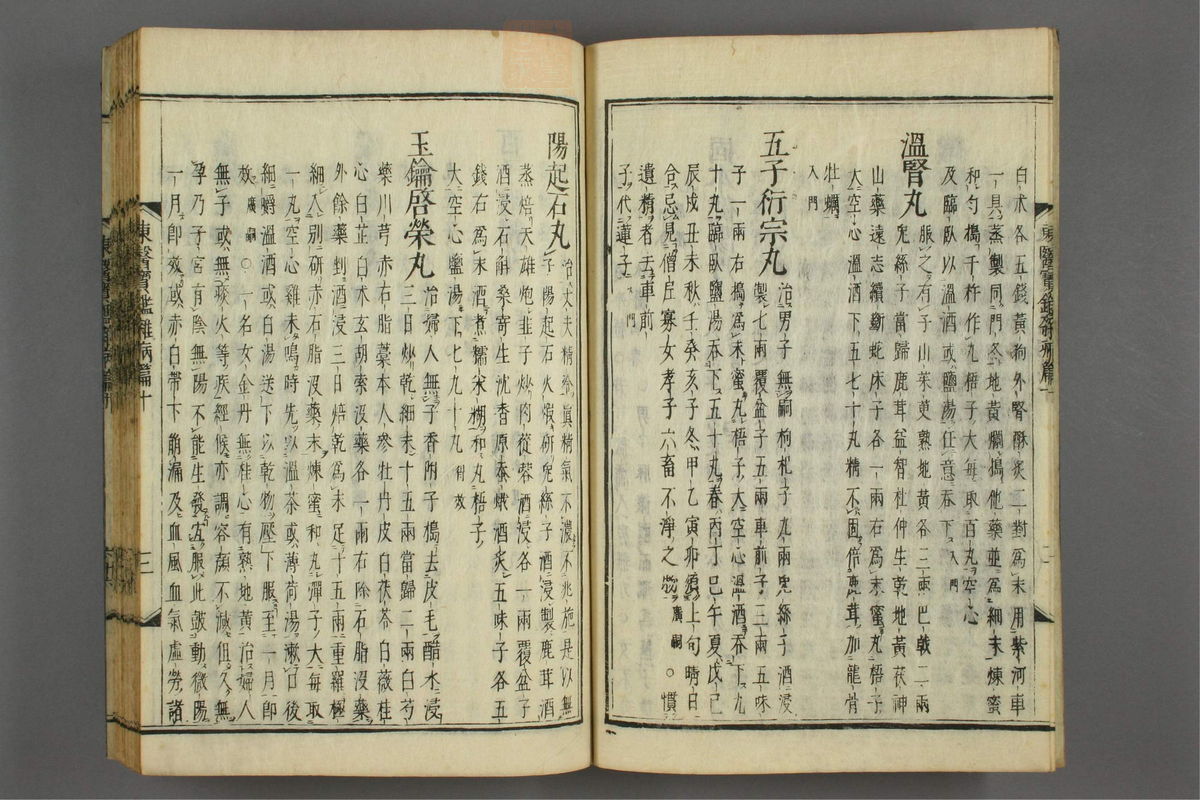 白朮各五錢黃狗外腎酥炙二對爲末用紫河車
一具蒸製同門冬地黃爛搗他藥並爲細末煉蜜
和勻搗千杵作丸梧子大每取百丸空心
及臨臥以溫酒或鹽湯任意呑下入門
溫腎丸
服之有子山茱萸熟地黃各三兩巴戟二兩
兔絲子當歸鹿茸益智杜仲生乾地黃茯神
山藥遠志續斷蛇床子各一兩右爲末蜜丸梧子
大空心溫酒下五七十丸精不固倍鹿茸加龍骨
牡蠣入門
五子衍宗丸
治男子無嗣枸杞子九兩兔絲子酒浸
製七兩覆盆子五兩車前子三兩五味
子一兩右搗爲末蜜丸梧子大空心溫酒呑下九
十丸臨臥鹽湯呑下五十丸春丙丁巳午夏戊己
辰戌丑未秋壬癸亥子冬甲乙寅卯須上旬晴日
合忌見僧尼寡女孝子六畜不淨之物廣嗣○慣
遺精者去車前
子代蓮子入門
東醫寶鑑雜病篇十
二
陽起石丸
治丈夫精冷眞精氣不濃不能施是以無
子陽起石火煆研兔絲子酒浸製鹿茸酒
蒸焙天雄炮韭子炒肉從蓉酒浸各一兩覆盆子
酒浸石斛桑寄生沈香原蚕蛾酒炙五味子各五
錢右爲末酒煮糯米糊和丸梧子
大空心鹽湯下七九十丸
玉鑰啓榮丸
治婦人無子香附子搗去皮毛醋水浸
三日炒乾細末十五兩當歸二兩白芍
藥川芎赤石脂藁本人參牡丹皮白茯苓白薇桂
心白芷白朮玄胡索沒藥各一兩右除石脂沒藥
外餘藥剉酒浸三日焙乾爲末足十五兩重羅極
細入別硏赤石脂沒藥末煉蜜和丸彈子大每取
一丸空心雞未鳴時先以溫茶或薄荷湯漱口後
細嚼溫酒或白湯送下以乾物壓下服至一月卽
效廣嗣○一名女金丹無桂心有熟地黃治婦人
無子或無痰火等疾經候亦調容顏不減但久無
孕乃子宮有陰無陽不能生發宜服此鼓動微陽
一月卽效或赤白帶下崩漏及血風血氣虛勞諸
東醫寶鑑雜病篇十
三